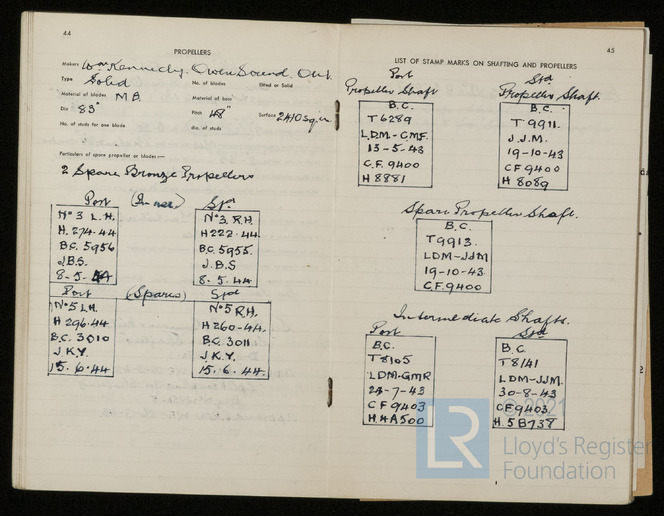 44
PROPELLERS
Makers Wm Kennedy. Owen Sound. Ont.
Type Solid No. of blades Fitted or Solid
Material of blades M B Material of boss
Dia 83" Pitch 48" Surface 2410 sq.in
No. of studs for one blade dia. of studs
Particulars of spare propeller or blades:—
2 Spare Bronze Propellers
Port (In use) Stbd
No 3 L.H.
H.274.44
B.C. 5956
J.B.S.
8-5-44
No 3. R.H.
H 222.44
B.C. 5955.
J.B.S
8.5.44
Port (Spares) Stbd
No 5 LH.
H 296.44
B.C. 3010
J.K.Y.
15.6.44
No 5 R.H.
H 260-44.
B.C. 3011
J.K.Y.
15.6.44.
45
LIST OF STAMP MARKS ON SHAFTING AND PROPELLERS
Port
Propeller Shaft
B.C.
T 6289
LDM-CMF.
13-5-43
C.F. 9400
H 8881
Stbd
Propeller Shaft.
B.C.
T 9911.
J.J.M.
19-10-43
CF 9400
H 8089
Spare Propeller Shaft.
B.C.
T9913.
LDM-JJM
19-10-43
C.F. 9400
Intermediate Shafts.
Port
B.C.
T8105
LDM-GMR
23-7-43
CF 9403
H.4A500
Stbd
B.C.
T8141
LDM-JJM.
30-8-43
CF9403.
H.5B738
© 2021
LR
Lloyd's Register
Foundation